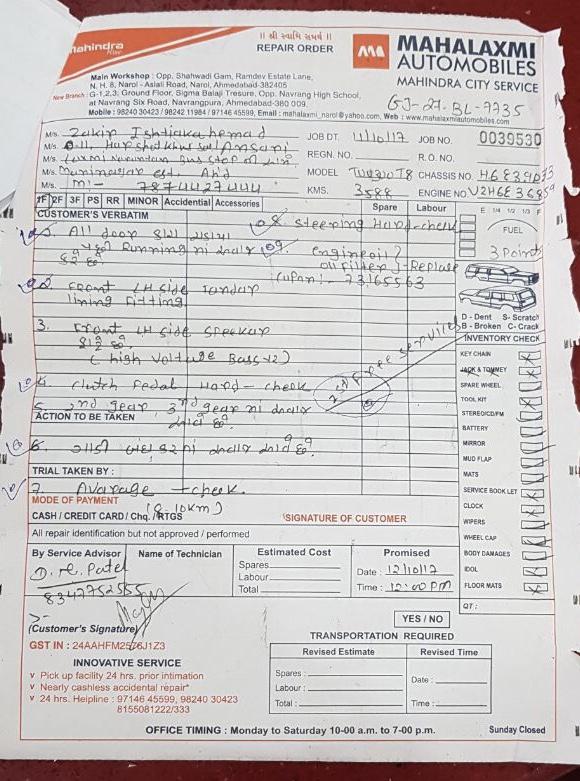 mahindra
Rise
॥ શ્રી સ્વામિ સમર્થ ॥
REPAIR ORDER
MAHALAXMI
AUTOMOBILES
MAHINDRA CITY SERVICE
Main Workshop : Opp. Shahwadi Gam, Ramdev Estate Lane,
N. H. 8, Narol - Aslali Road, Narol, Ahmedabad-382405
New Branch : G-1,2,3, Ground Floor, Sigma Balaji Tresure, Opp. Navrang High School,
at Navrang Six Road, Navrangpura, Ahmedabad-380 009.
Mobile : 98240 30423 / 98242 11984 / 97146 45599, Email : mahalaxmi_narol@yahoo.com, Web : www.mahalaxmiautomobiles.com
GJ-27-BL-7735
M/s. Zakir Ishtiakahemad
JOB DT. 11/10/17 JOB NO. 0039530
M/s. Ansari
REGN. NO. R. O. NO.
M/s. Bus stop
MODEL TUV300T8 CHASSIS NO.
M/s. Maninagar est. Ahd
KMS. 3588 ENGINE NO.
M/s. m:- 7874427444
1F 2F 3F PS RR MINOR Accidental Accessories Spare Labour
CUSTOMER'S VERBATIM
E 1/4 1/2 1/3 F
FUEL
3 Points
1. All door
08. Steering Hard-check
Running ni
09. engine oil
oil filter - Replase
cupan:- 73165563
02. Front LH side
lining Fitting
3. Front LH side speekar
(high voltage Bass-12)
2nd free service
04. Clutch Pedal Hard - check
5. 2nd gear, 3rd gear ni
ACTION TO BE TAKEN
6.
TRIAL TAKEN BY :
7. Avarage - check.
MODE OF PAYMENT
CASH / CREDIT CARD / Chq. / RTGS
SIGNATURE OF CUSTOMER
All repair identification but not approved / performed
D - Dent S- Scratch
B - Broken C- Crack
INVENTORY CHECK
KEY CHAIN
JACK & TOMMEY
SPARE WHEEL
TOOL KIT
STEREO/CD/FM
BATTERY
MIRROR
MUD FLAP
MATS
SERVICE BOOK LET
CLOCK
WIPERS
WHEEL CAP
BODY DAMAGES
IDOL
FLOOR MATS
QT :
By Service Advisor
Name of Technician
Estimated Cost
Promised
D. R. Patel
8347752555
Spares
Labour
Total
Date : 12/10/17
Time : 12:00 PM
YES / NO
(Customer's Signature)
TRANSPORTATION REQUIRED
GST IN : 24AAHFM2576J1Z3
INNOVATIVE SERVICE
v Pick up facility 24 hrs. prior intimation
v Nearly cashless accidental repair*
v 24 hrs. Helpline : 97146 45599, 98240 30423
8155081222/333
Revised Estimate
Revised Time
Spares :
Labour :
Total :
Date :
Time :
OFFICE TIMING : Monday to Saturday 10-00 a.m. to 7-00 p.m.
Sunday Closed